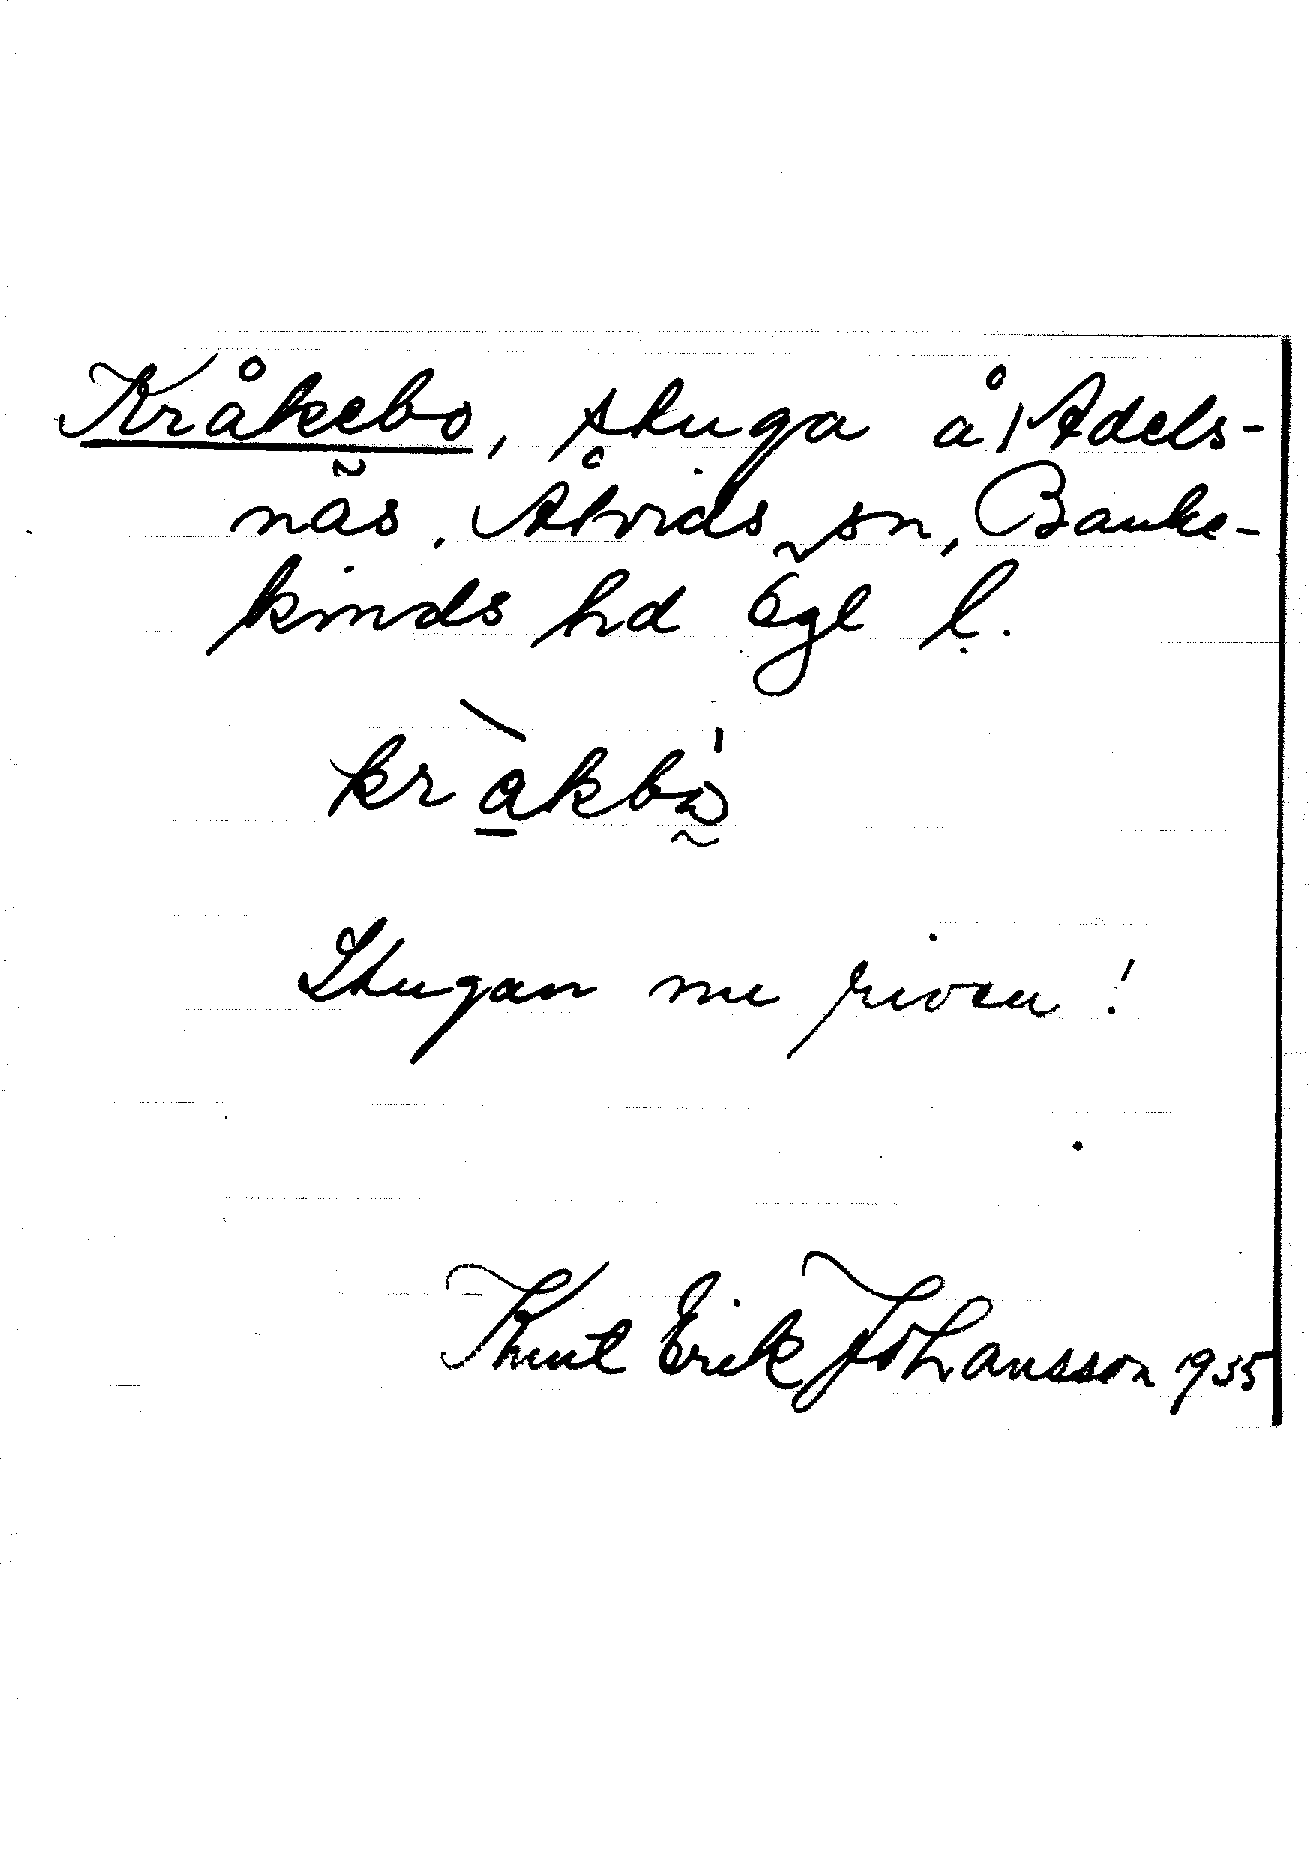 Kråkebo, stuga å Adels-
näs, Åtvids sn, Banke-
kinds hd Ögl l.
kràkbò
Stugan nu riven!
Knut Erik Johansson 1935